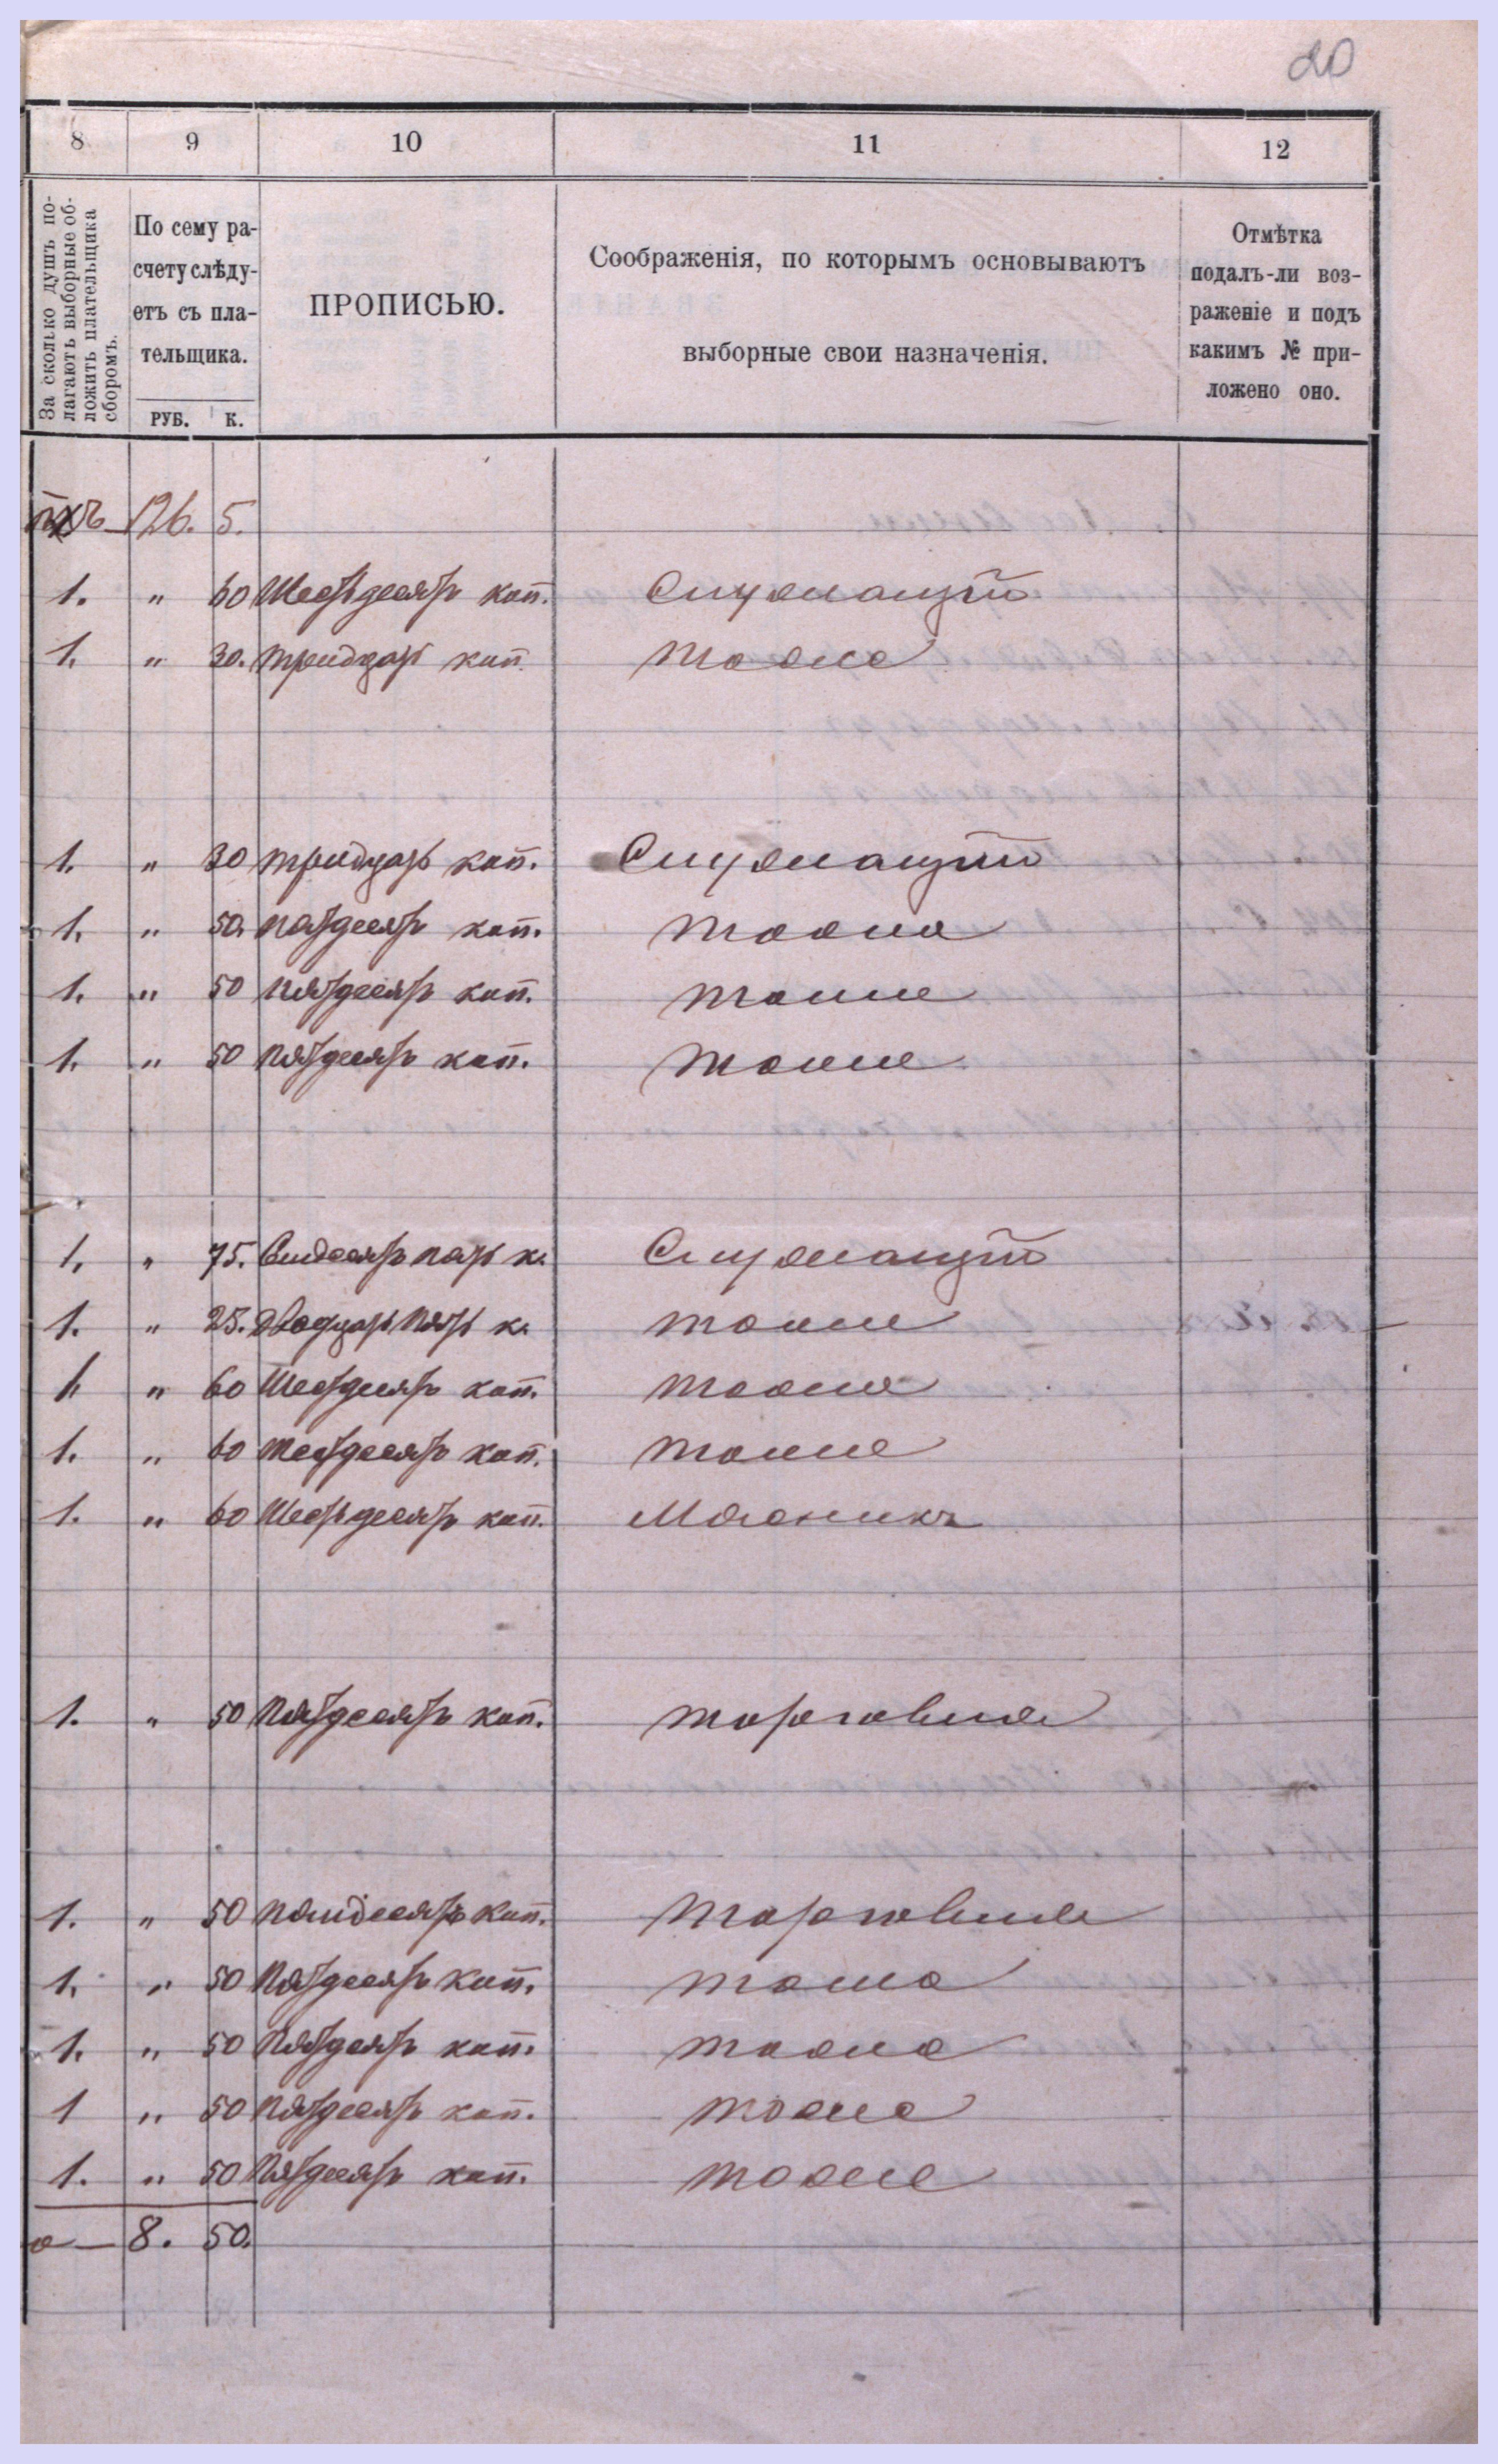 20
8 9 10 11 12
За сколько душъ по-
лагаютъ выборные об-
ложить плательщика
сборомъ.
По сему ра-
счету слѣду-
етъ съ пла-
тельщика.
РУБ. К.
ПРОПИСЬЮ.
Соображенія, по которымъ основываютъ
выборные свои назначенія.
Отмѣтка
подалъ-ли воз-
раженіе и подъ
какимъ № при-
ложено оно.
126. 5.
1. " 60 Шестьдесятъ коп.
1. " 30. тридцать коп. тоже
1. " 30 тридцать коп.
1. " 50. пятдесятъ коп. тоже
1. " 50 пятдесятъ коп. тоже
1. " 50 пятдесятъ коп. тоже
1. " 75. Семдесятъ пять к.
1. " 25. двадцать пять к. тоже
1. " 60 Шестдесятъ коп. тоже
1. " 60 шестдесятъ коп. тоже
1. " 60 Шестьдесятъ коп. Мясникъ
1. " 50 пятдесятъ коп. торговля
1. " 50 пятдесятъ коп. торговля
1. " 50 пятдесятъ коп. тоже
1. " 50 пятдесятъ коп. тоже
1 " 50 пятдесятъ коп. тоже
1. " 50 пятдесятъ коп. тоже
8. 50.